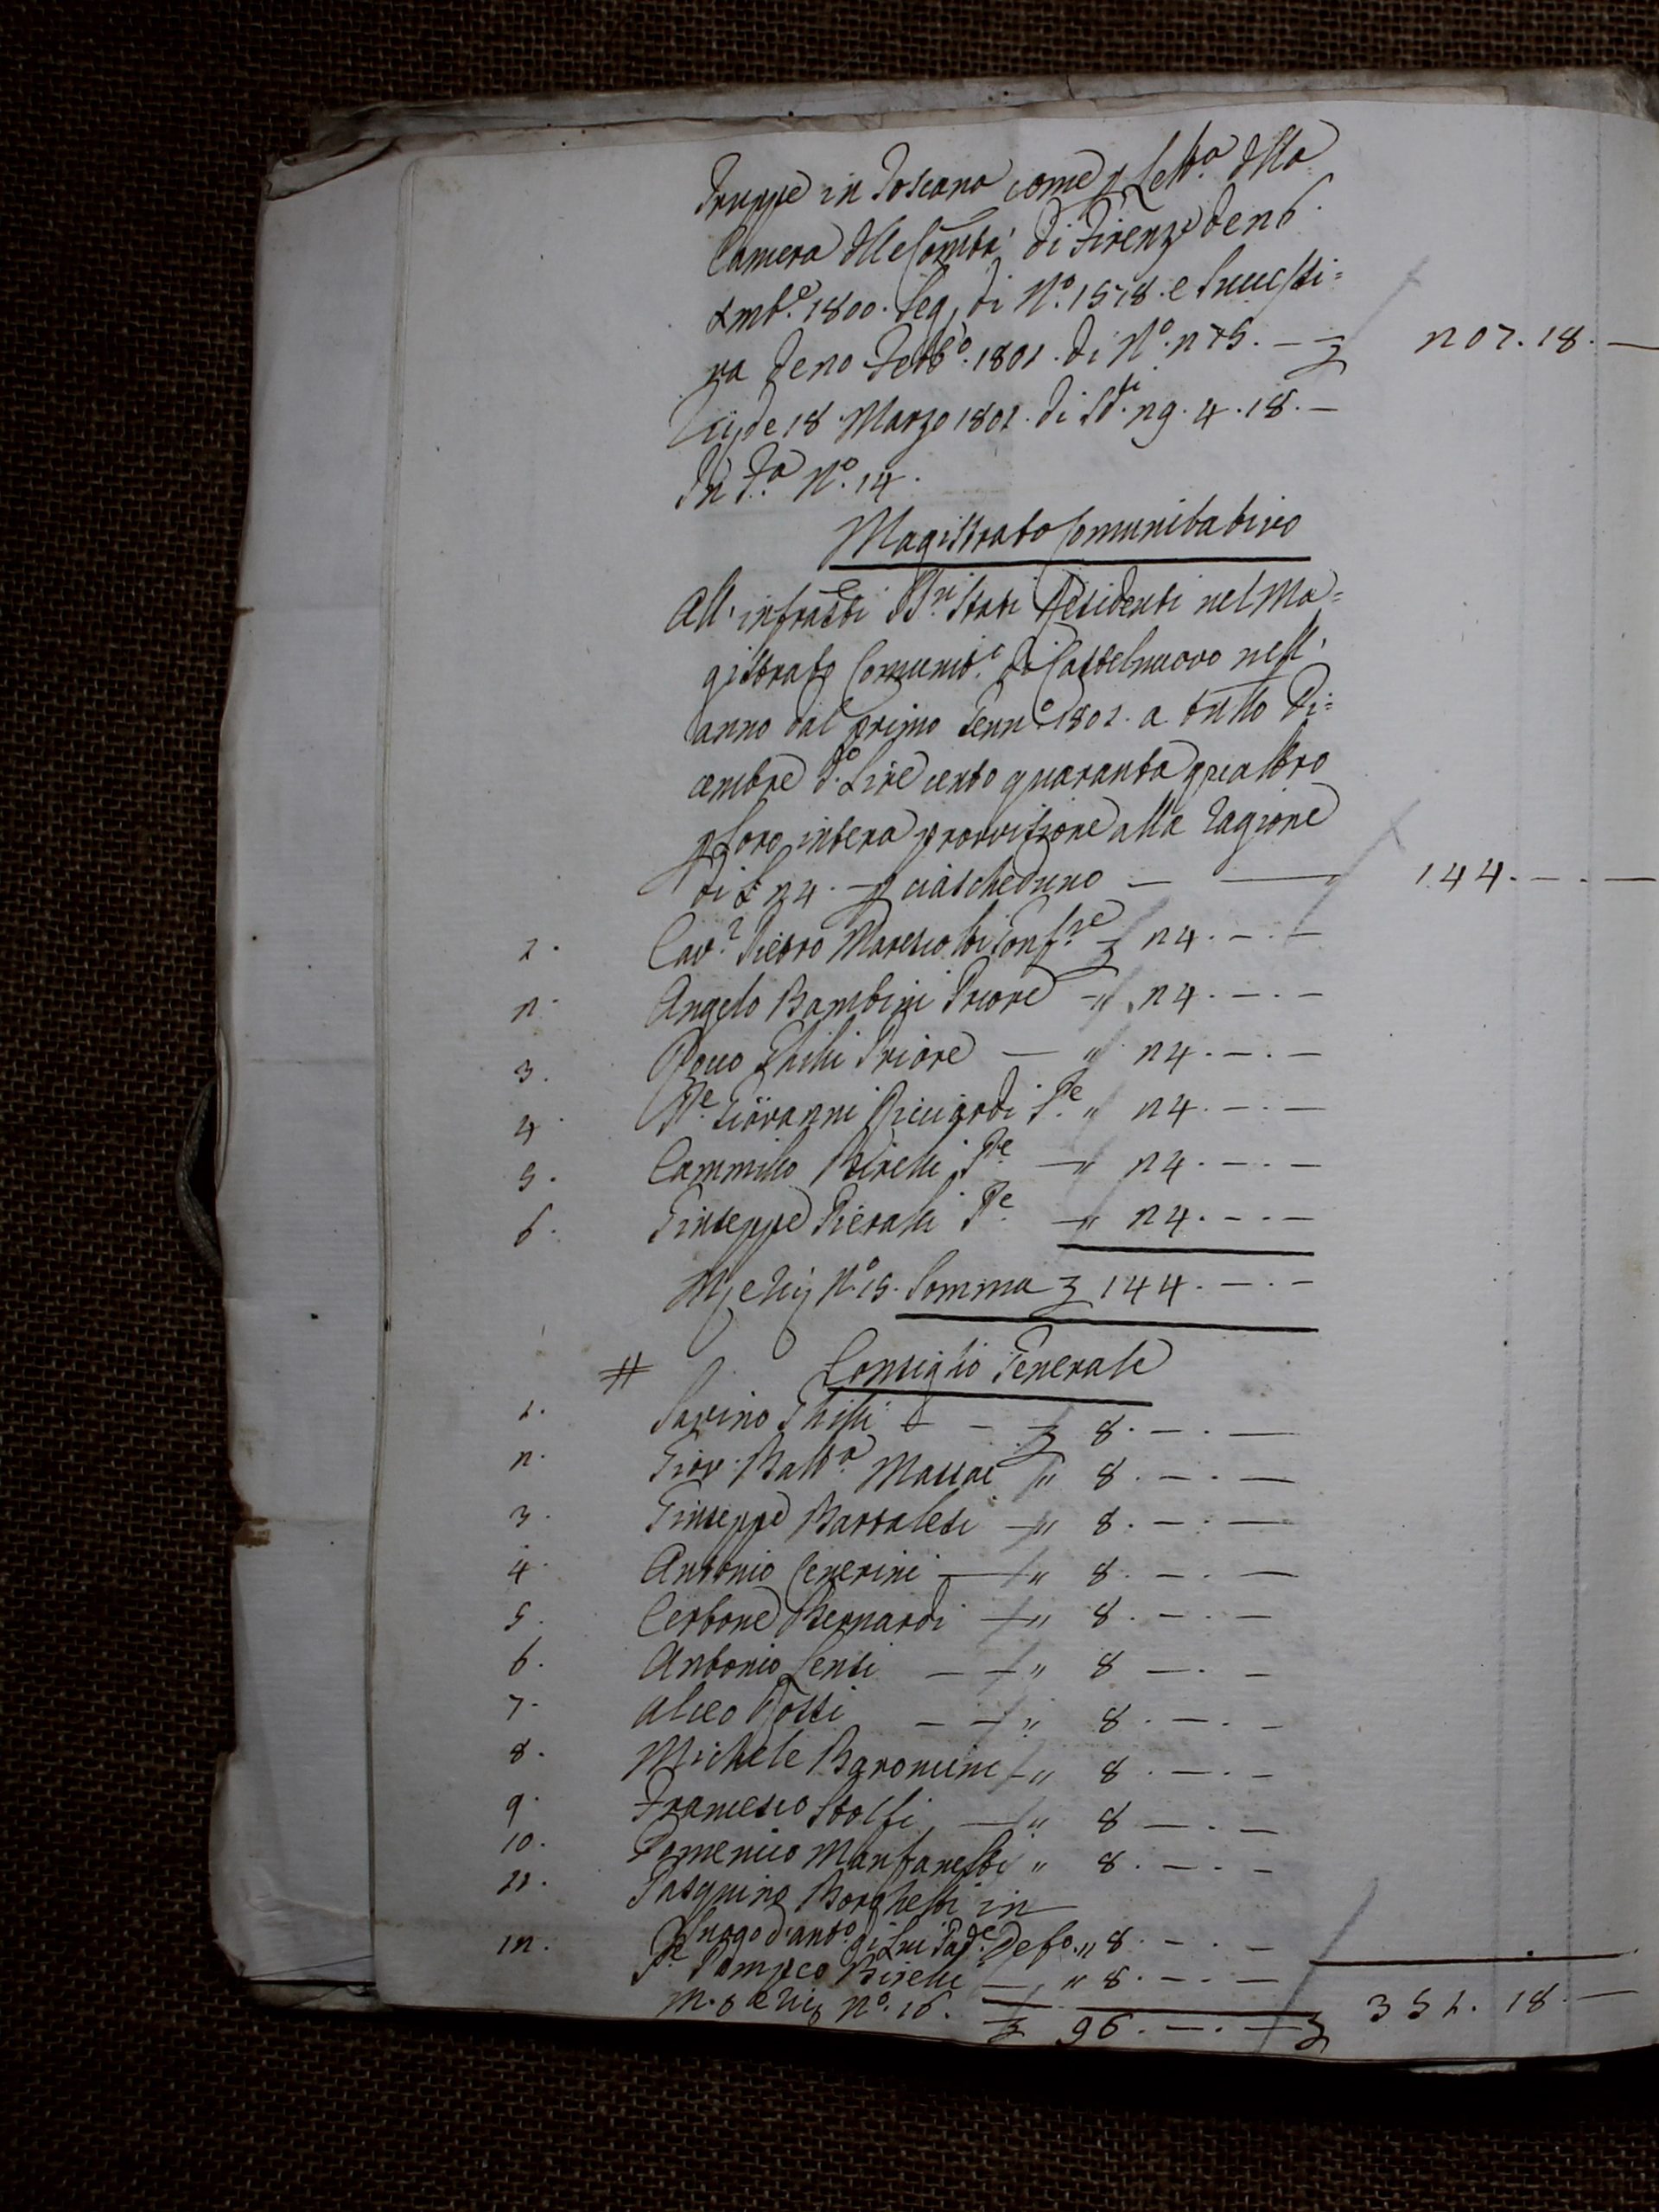 Truppe in Toscana come p Lett.a della
Camera delle Com.tà di Firenze de 26.
Xmb.e 1800. Seg. di N.o 1518. e Successi=
va de 20 Febb.o 1801. di N.o 275. — £ 207. 18. —
de 18 Marzo 1801. di Sd.i 29. 4. 18. —
In F.a N.o 14.
Magistrato Comunitativo
All' infratti SS.ri Stati Residenti nel Ma=
gistrato Comunit.o di Castelnuovo nell'
anno dal primo Genn.o 1801. a tutto Di=
cembre d.o Lire cento quaranta quattro
p loro intera provvisione alla ragione
di £ 24. — p ciascheduno — — 144. — . —
1. Cav.r Pietro Marescotti Gonf.re £ 24. — . —
2. Angelo Bambini Priore — " 24. — . —
3. Rocco Ghilli Priore — " 24. — . —
4. P.e Giovanni Ricciardi P.e " 24. — . —
5. Cammillo Birelli P.e — " 24. — . —
6. Giuseppe Pieralli P.e — " 24. — . —
N.o 15. Somma £ 144. — . —
# Consiglio Generale
1. Savino Ghilli — — £ 8. — . —
2. Giov: Batt.a Massai " 8. — . —
3. Giuseppe Barsalesi — " 8. — . —
4. Antonio Cenerini — " 8. — . —
5. Cerbone Bernardi — " 8. — . —
6. Antonio Lensi — — " 8 — . —
7. Alceo Rossi — — " 8. — . —
8. Michele Baroncini — " 8. — . —
9. Francesco Stolfi — " 8 — . —
10. Domenico Manfanetti " 8. — . —
11. Pasquino Borghetti in
luogo d'Ant.o di Lui Pad.e Def.o " 8. — . —
12. P.e Pompeo Birelli — " 8. — . —
N.o 16. £ 96. — . — £ 351. 18. —